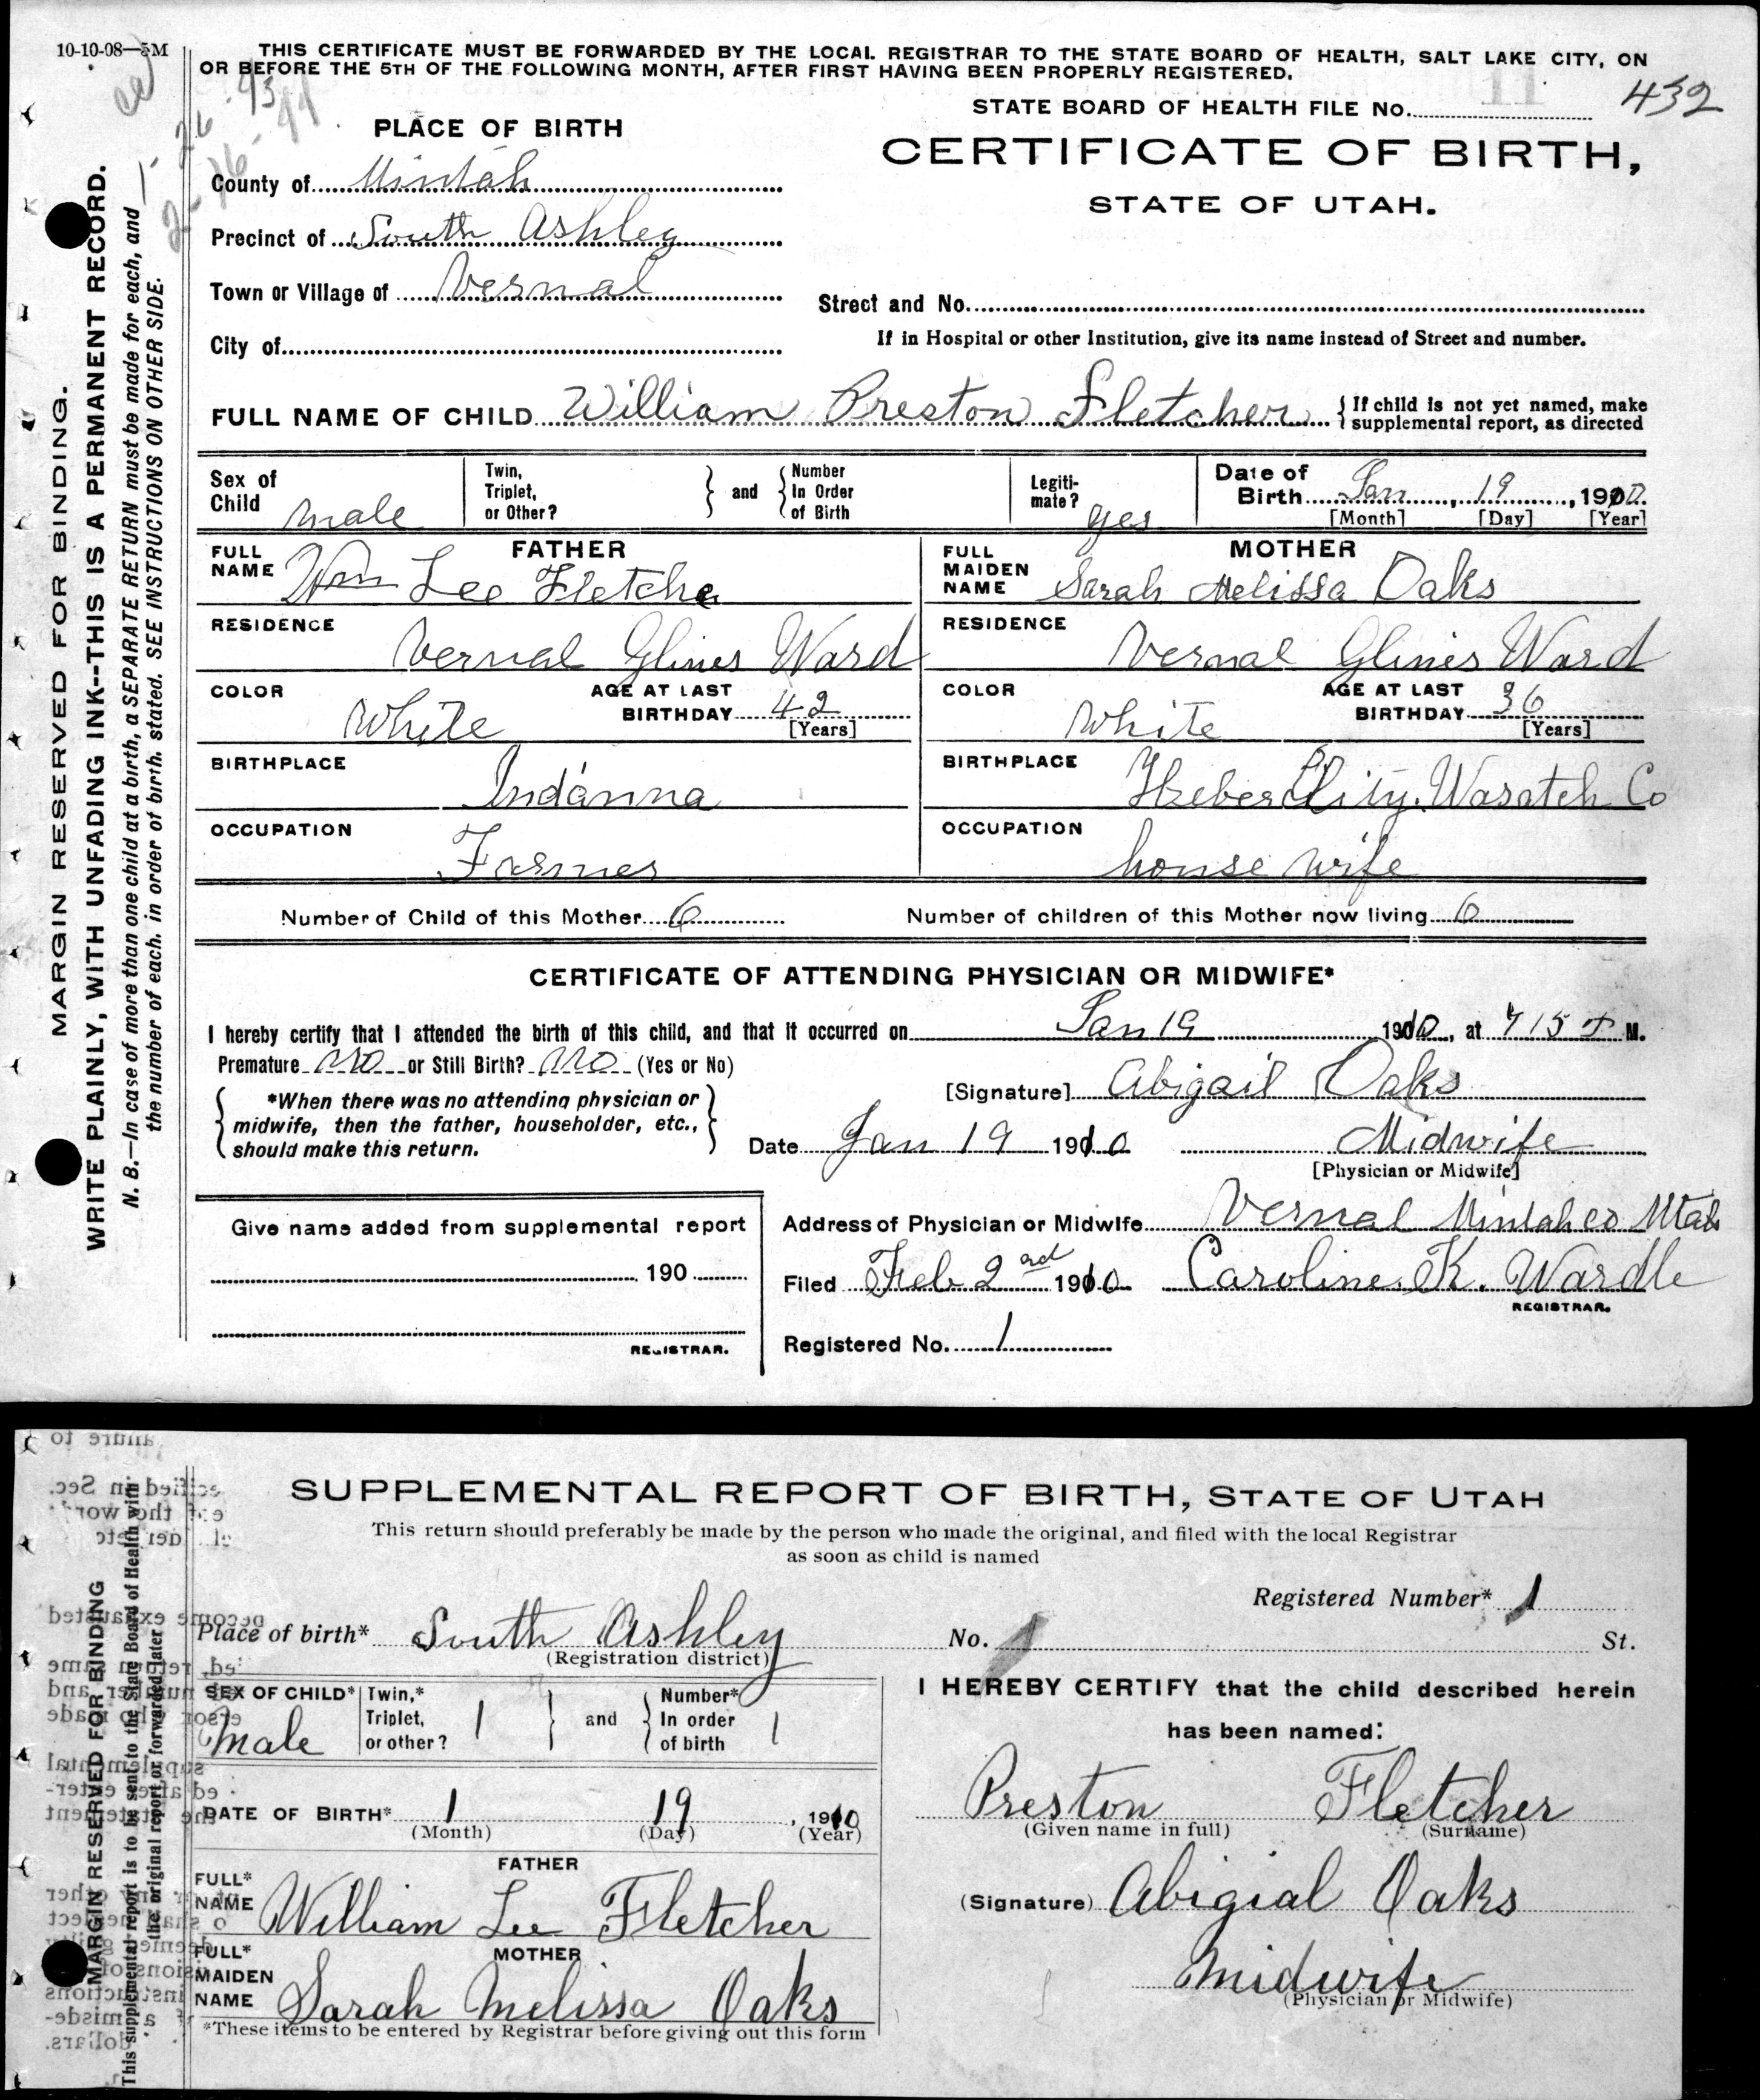 10-10-08—5M
THIS CERTIFICATE MUST BE FORWARDED BY THE LOCAL REGISTRAR TO THE STATE BOARD OF HEALTH, SALT LAKE CITY, ON
OR BEFORE THE 5TH OF THE FOLLOWING MONTH, AFTER FIRST HAVING BEEN PROPERLY REGISTERED.
STATE BOARD OF HEALTH FILE NO. 432
PLACE OF BIRTH
CERTIFICATE OF BIRTH,
STATE OF UTAH.
County of Uintah
Precinct of South Ashley
Town or Village of Vernal
Street and No.
City of
If in Hospital or other Institution, give its name instead of Street and number.
FULL NAME OF CHILD William Preston Fletcher { If child is not yet named, make
supplemental report, as directed
Sex of Child male
Twin, Triplet, or Other? } and { Number In Order of Birth
Legiti-mate? yes
Date of Birth Jan, 19, 1910
[Month] [Day] [Year]
FATHER
FULL NAME Wm Lee Fletche
MOTHER
FULL MAIDEN NAME Sarah Melissa Oaks
RESIDENCE Vernal Glines Ward
RESIDENCE Vernal Glines Ward
COLOR White AGE AT LAST BIRTHDAY 42 [Years]
COLOR White AGE AT LAST BIRTHDAY 36 [Years]
BIRTHPLACE Indanna
BIRTHPLACE Heber City. Wasatch Co
OCCUPATION Farmer
OCCUPATION house wife
Number of Child of this Mother 6 Number of children of this Mother now living 6
CERTIFICATE OF ATTENDING PHYSICIAN OR MIDWIFE*
I hereby certify that I attended the birth of this child, and that it occurred on Jan 19 1910, at 715 M.
Premature no or Still Birth? no (Yes or No)
[Signature] Abigail Oaks
{ *When there was no attending physician or
midwife, then the father, householder, etc.,
should make this return. }
Date Jan 19 1910 Midwife
[Physician or Midwife]
Give name added from supplemental report
190
REGISTRAR.
Address of Physician or Midwife Vernal Uintah co Utah
Filed Feb 2rd 1910 Caroline. K. Wardle
REGISTRAR.
Registered No. 1
MARGIN RESERVED FOR BINDING.
WRITE PLAINLY, WITH UNFADING INK--THIS IS A PERMANENT RECORD.
N. B.—In case of more than one child at a birth, a SEPARATE RETURN must be made for each, and
the number of each. in order of birth. stated. SEE INSTRUCTIONS ON OTHER SIDE.
SUPPLEMENTAL REPORT OF BIRTH, STATE OF UTAH
This return should preferably be made by the person who made the original, and filed with the local Registrar
as soon as child is named
Registered Number* 1
Place of birth* South Ashley No. 1 St.
(Registration district)
SEX OF CHILD* male
Twin,* Triplet, or other? 1 } and { Number* In order of birth 1
DATE OF BIRTH* 1 19, 1910
(Month) (Day) (Year)
FATHER
FULL* NAME William Lee Fletcher
MOTHER
FULL* MAIDEN NAME Sarah Melissa Oaks
*These items to be entered by Registrar before giving out this form
I HEREBY CERTIFY that the child described herein
has been named:
Preston Fletcher
(Given name in full) (Surname)
(Signature) Abigial Oaks
Midwife
(Physician or Midwife)
MARGIN RESERVED FOR BINDING
This supplemental report is to be sent to the State Board of Health with
the original report or forwarded later